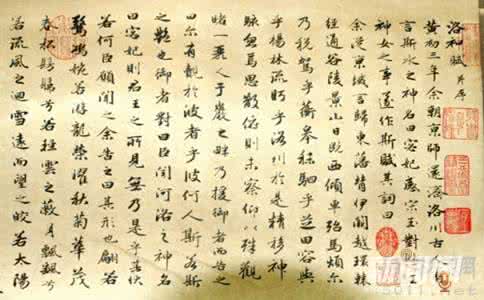 洛神賦 并序
黃初三年余朝京師還濟洛川古
言斯水之神名曰宓妃感宋玉對楚王
神女之事遂作斯賦其詞曰
余從京域言歸東藩背伊闕越轘轅
經通谷陵景山日既西傾車殆馬煩尔
乃稅駕乎蘅皋秣駟乎芝田容與
乎楊林流眄乎洛川於是精移神
駭忽焉思散俯則未察仰以殊觀
睹一麗人于巖之畔乃援御者而告之
曰尔有覿於彼者乎彼何人斯若斯
之豔也御者對曰臣聞河洛之神名
曰宓妃則君王之所見無乃是乎其狀
若何臣願聞之余告之曰其形也翩若
驚鴻婉若游龍榮曜秋菊華茂
春松髣髴兮若輕雲之蔽月飄飄兮
若流風之迴雪遠而望之皎若太陽